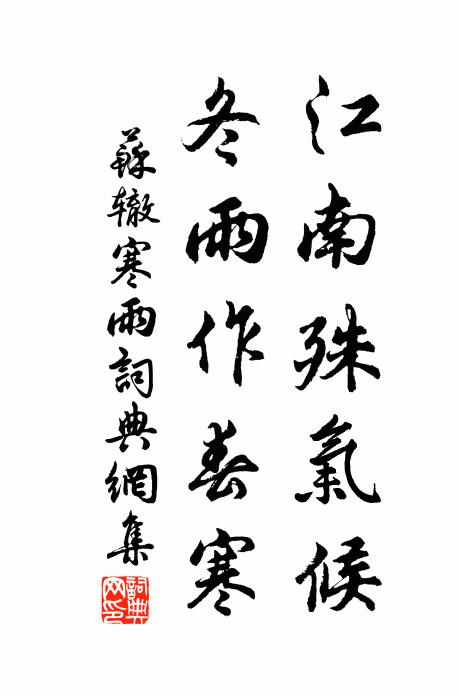 江南殊氣候
冬雨作春寒
蘇辙寒雨詞典網集
詞典网印